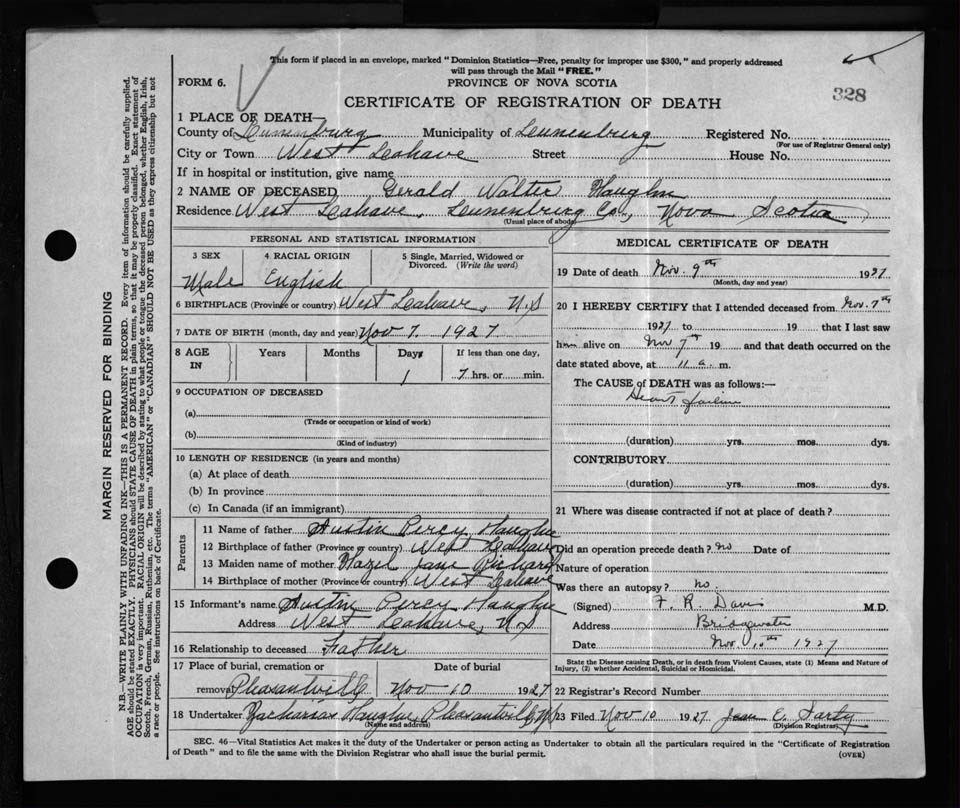 This form if placed in an envelope, marked "Dominion Statistics—Free, penalty for improper use $300," and properly addressed
will pass through the Mail "FREE."
FORM 6.
PROVINCE OF NOVA SCOTIA
328
CERTIFICATE OF REGISTRATION OF DEATH
1 PLACE OF DEATH—
County of Lunenburg Municipality of Lunenburg Registered No.
(For use of Registrar General only)
City or Town West Leahave Street House No.
If in hospital or institution, give name
2 NAME OF DECEASED Gerald Walter Haughn
Residence West Leahave, Lunenburg Co., Nova Scotia
(Usual place of abode)
PERSONAL AND STATISTICAL INFORMATION
3 SEX 4 RACIAL ORIGIN 5 Single, Married, Widowed or
Divorced. (Write the word)
Male English
6 BIRTHPLACE (Province or country) West Leahave, N.S
7 DATE OF BIRTH (month, day and year) Nov 7. 1927
8 AGE IN Years Months Days If less than one day,
1 7 hrs. or min.
9 OCCUPATION OF DECEASED
(a)
(Trade or occupation or kind of work)
(b)
(Kind of industry)
10 LENGTH OF RESIDENCE (in years and months)
(a) At place of death
(b) In province
(c) In Canada (if an immigrant)
Parents
11 Name of father Austin Percy Haughn
12 Birthplace of father (Province or country) West Leahave
13 Maiden name of mother Hazel Jane
14 Birthplace of mother (Province or country) West Leahave
15 Informant's name Austin Percy Haughn
Address West Leahave, N.S
16 Relationship to deceased Father
17 Place of burial, cremation or Date of burial
removal Pleasantville Nov 10 1927
18 Undertaker Zacharias Haughn, Pleasantville, N.S
(Name and address)
MEDICAL CERTIFICATE OF DEATH
19 Date of death Nov. 9th 1927
(Month, day and year)
20 I HEREBY CERTIFY that I attended deceased from Nov. 7th
1927 to 19 that I last saw
him alive on Nov 7th 19 and that death occurred on the
date stated above, at 11 a. m.
The CAUSE of DEATH was as follows:—
Heart failure
(duration) yrs. mos. dys.
CONTRIBUTORY
(duration) yrs. mos. dys.
21 Where was disease contracted if not at place of death?
Did an operation precede death? no Date of
Nature of operation
Was there an autopsy? no.
(Signed) F. R. Davis M.D.
Address Bridgewater
Date Nov. 10th 1927
State the Disease causing Death, or in death from Violent Causes, state (1) Means and Nature of
Injury, (2) whether Accidental, Suicidal or Homicidal.
22 Registrar's Record Number
23 Filed Nov 10 1927 Jean E.
(Division Registrar)
SEC. 46—Vital Statistics Act makes it the duty of the Undertaker or person acting as Undertaker to obtain all the particulars required in the "Certificate of Registration
of Death" and to file the same with the Division Registrar who shall issue the burial permit.
(OVER)
MARGIN RESERVED FOR BINDING
N.B.—WRITE PLAINLY WITH UNFADING INK—THIS IS A PERMANENT RECORD. Every item of information should be carefully supplied.
AGE should be stated EXACTLY. PHYSICIANS should STATE CAUSE OF DEATH in plain terms, so that it may be properly classified. Exact statement of
OCCUPATION is very important. RACIAL ORIGIN will be described by stating to what people or tongue the deceased person belonged, whether English, Irish,
Scotch, French, German, Russian, Ruthenian, etc. The terms "AMERICAN" or "CANADIAN" SHOULD NOT BE USED as they express citizenship but not
a race or people. See instructions on back of Certificate.